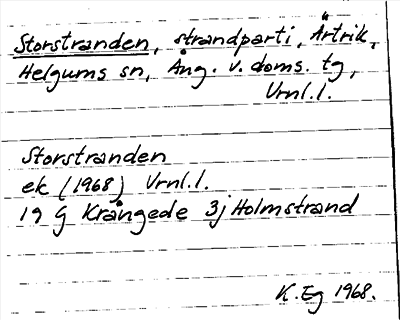 Storstranden, strandparti, Ärtrik,
Helgums sn, Ång. v. doms. tg,
Vrnl.l.
Storstranden
ek (1968) Vrnl.l.
19 G Krångede 3j Holmstrand
K. Eg 1968.